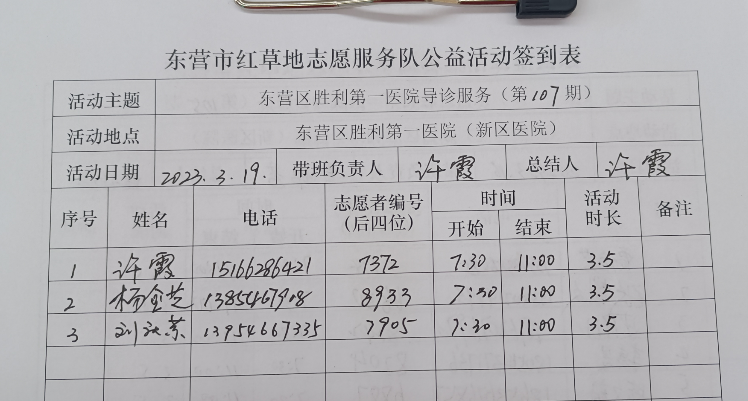 东营市红草地志愿服务队公益活动签到表
活动主题 东营区胜利第一医院导诊服务（第107期）
活动地点 东营区胜利第一医院（新区医院）
活动日期 2023.3.19. 带班负责人 许霞 总结人 许霞
序号 姓名 电话 志愿者编号（后四位） 时间 开始 结束 活动时长 备注
1 许霞 15166286421 7372 7:30 11:00 3.5
2 杨金芝 8933 7:30 11:00 3.5
3 13954667335 7905 7:30 11:00 3.5